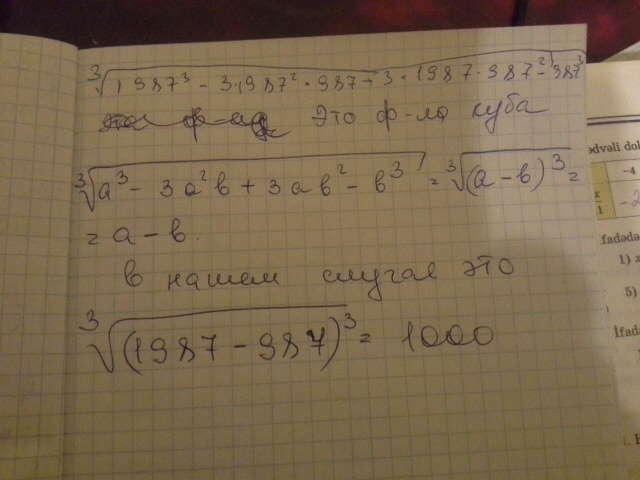 ∛(1987³ - 3·1987²·987 + 3·1987·987² - 987³)
Это ф-ла куба
∛(a³ - 3a²b + 3ab² - b³) = ∛(a - b)³ =
= a - b.
в нашем случае это
∛(1987 - 987)³ = 1000
ədvəli dol
-4
x
1
-2
fadədə
1) x
5)
İfadə